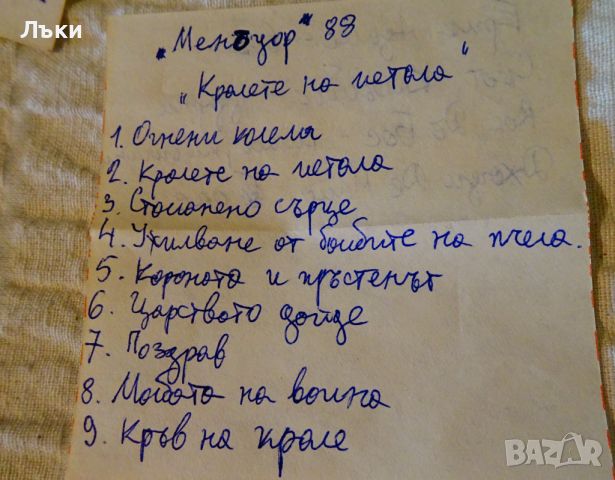 Лъки
„Менъуор" 88
„Кралете на метала"
1. Огнени колела
2. Кралете на метала
3. Стоманено сърце
4. Ужилване от бомбите на пчела.
5. Короната и пръстенът
6. Царството дойде
7. Поздрав
8. Молбата на воина
9. Кръв на крале
BAZAR